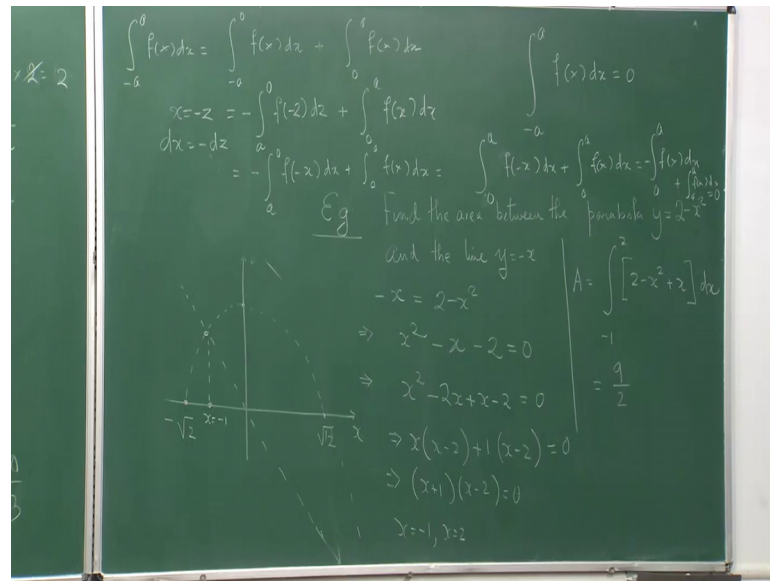 × 2 = 2
∫_{-a}^{a} f(x) dx = ∫_{-a}^{0} f(x) dx + ∫_{0}^{a} f(x) dx
∫_{-a}^{a} f(x) dx = 0
x = -z = -∫_{a}^{0} f(-z) dz + ∫_{0}^{a} f(x) dx
dx = -dz
= -∫_{a}^{0} f(-x) dx + ∫_{0}^{a} f(x) dx = ∫_{0}^{a} f(-x) dx + ∫_{0}^{a} f(x) dx = -∫_{0}^{a} f(x) dx
+ ∫_{0}^{a} f(x) dx = 0
Eg Find the area between the parabola y = 2 - x²
and the line y = -x
-x = 2 - x²
⇒ x² - x - 2 = 0
⇒ x² - 2x + x - 2 = 0
⇒ x(x-2) + 1(x-2) = 0
⇒ (x+1)(x-2) = 0
x = -1, x = 2
A = ∫_{-1}^{2} [2 - x² + x] dx
= 9/2
-√2
x = -1
√2
x
3